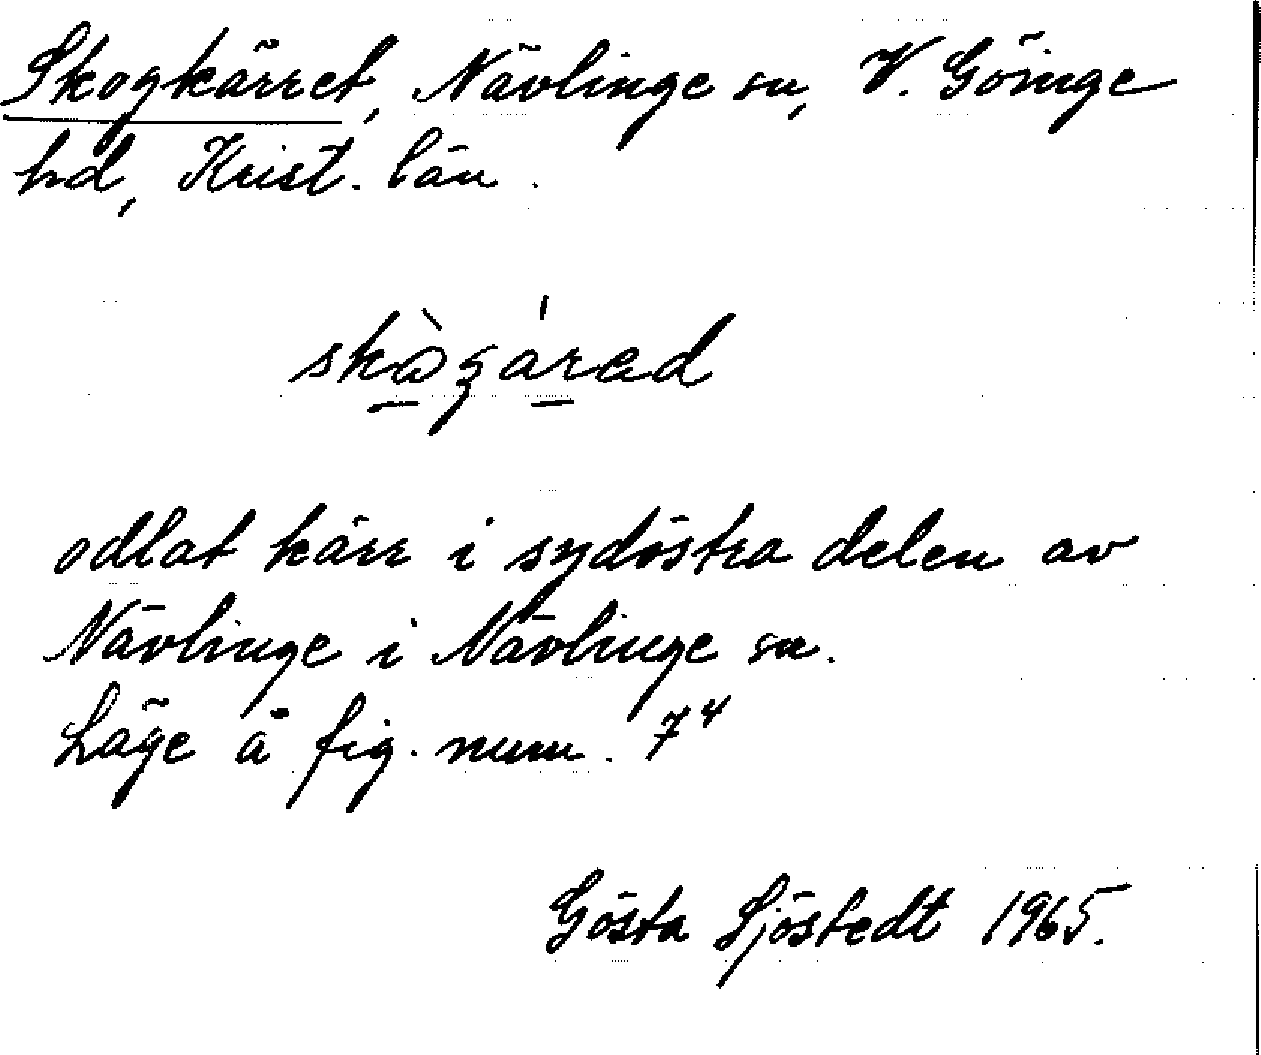 Skogkärret, Nävlinge sn, V. Göinge
hd, Krist. län.
skògárad
odlat kärr i sydöstra delen av
Nävlinge i Nävlinge sn.
Läge å fig. num. 7⁴
Gösta Sjöstedt 1965.